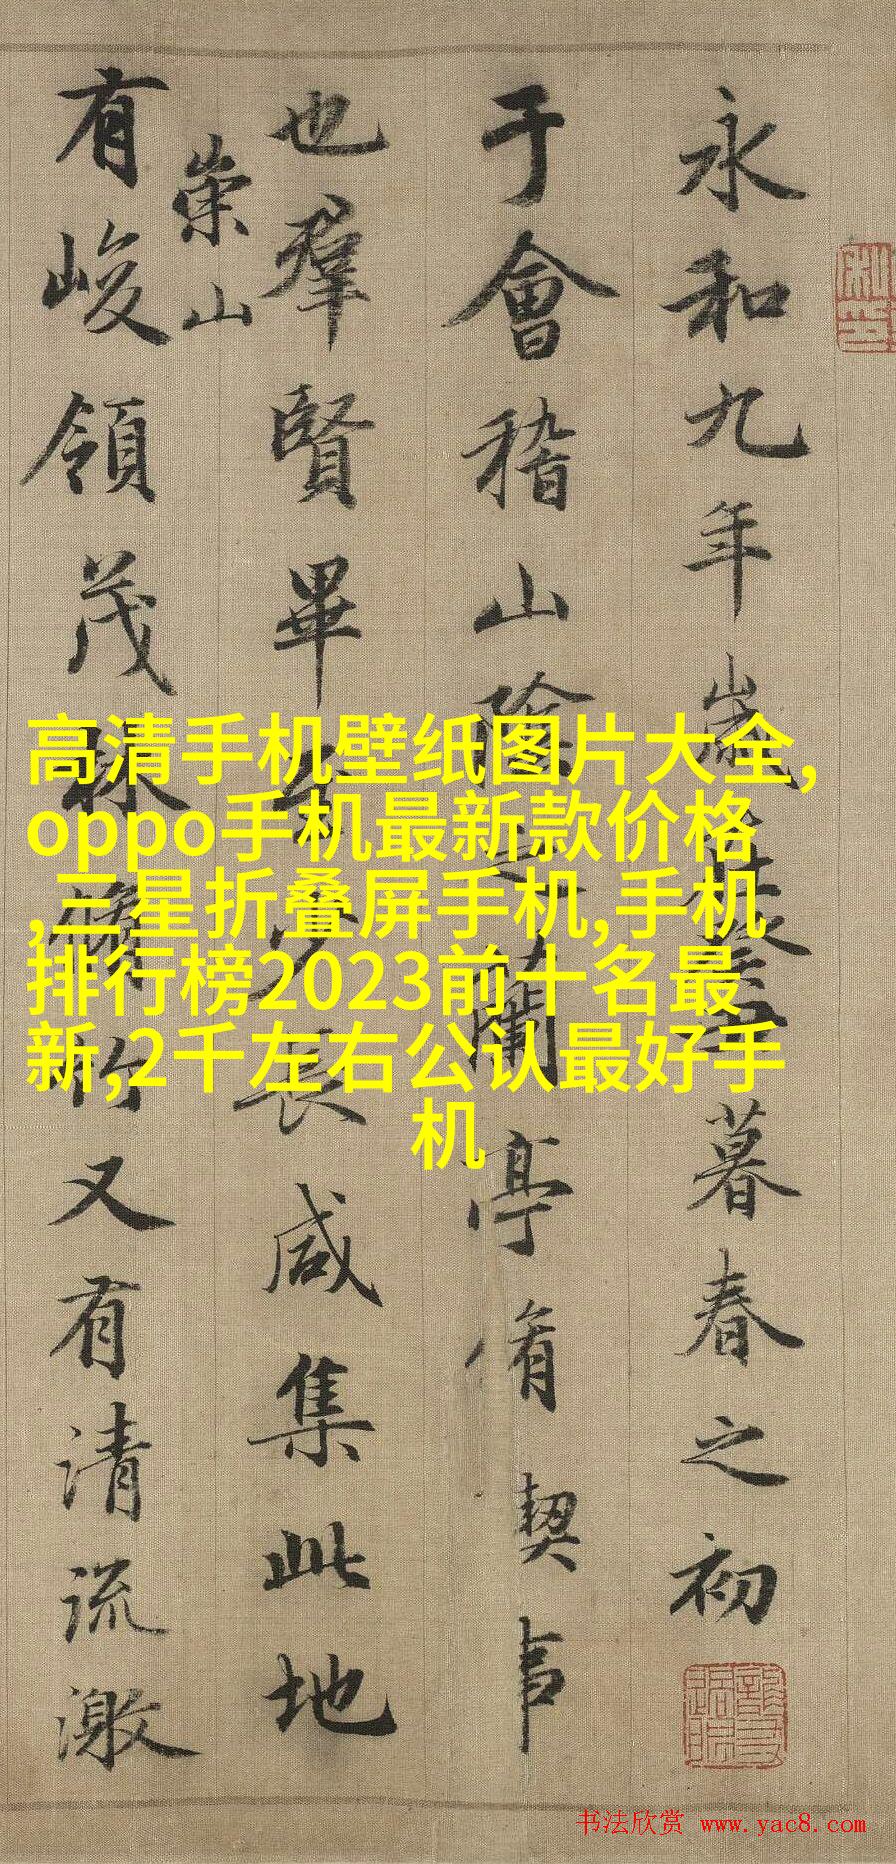 永和九年歲在癸丑暮春之初
于會稽山陰之蘭亭脩契事
也羣賢畢至少長咸集此地
崇山
有峻領茂林脩竹又有清流激
高清手机壁纸图片大全,
oppo手机最新款价格
,三星折叠屏手机,手机
排行榜2023前十名最
新,2千左右公认最好手
机
书法欣赏 www.yac8.com